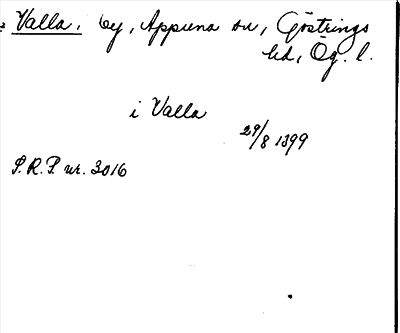 Valla. by, Appuna sn, Göstrings
hd, Ög. l.
i Valla
29/8 1399
P.R.P. nr. 3016